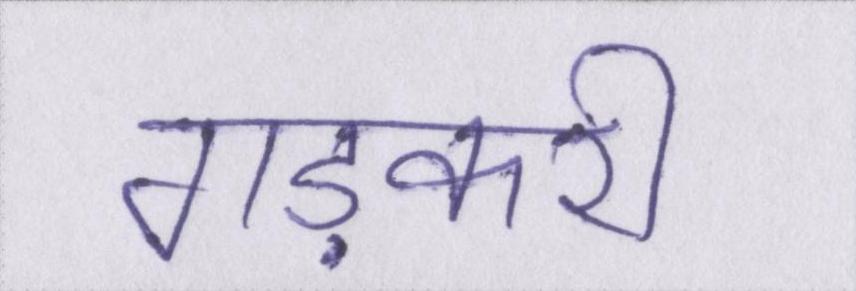 गड़करी